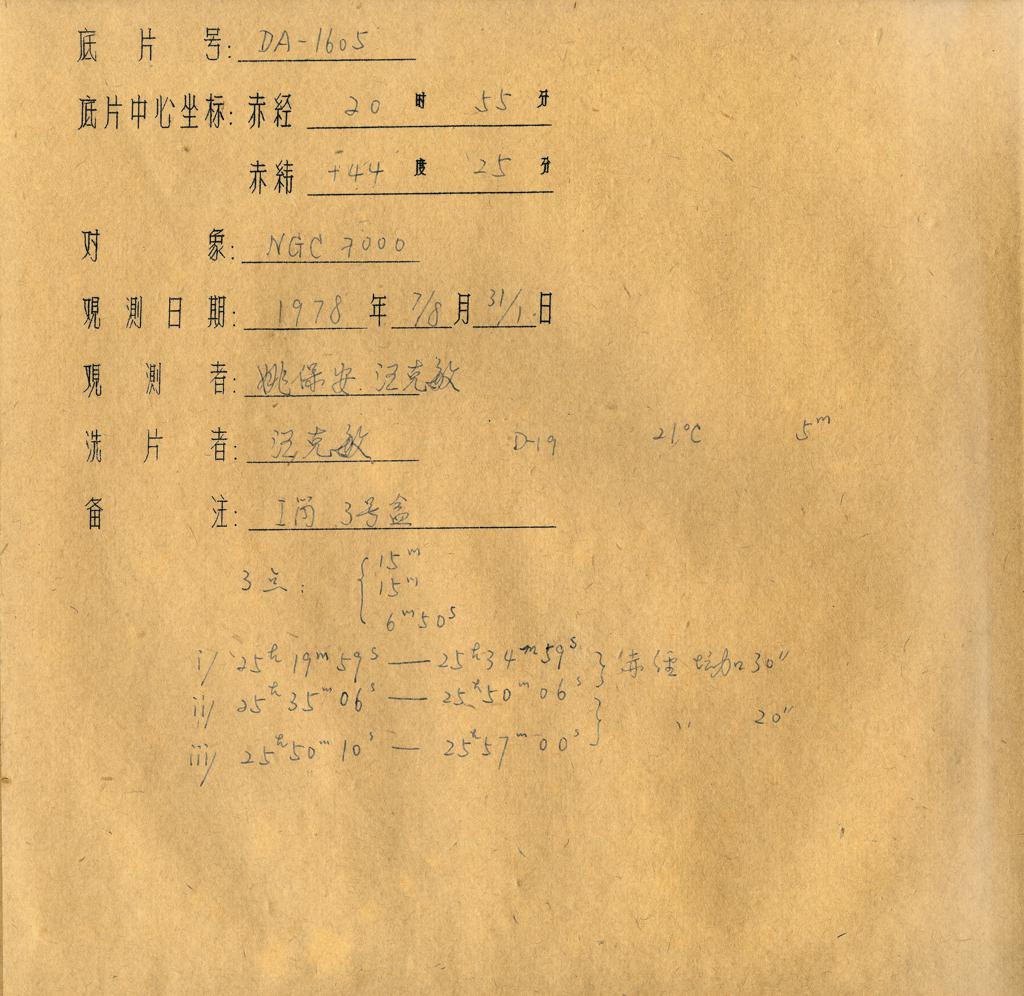 底片号: DA-1605
底片中心坐标: 赤经 20 时 55 分
赤纬 +44 度 25 分
对象: NGC 7000
观测日期: 1978 年 7/8 月 31/1 日
观测者: 姚保安 汪克敏
洗片者: 汪克敏 D-19 21°C 5ᵐ
备注: I筒 3号盒
3点: { 15ᵐ
15ᵐ
6ᵐ50ˢ
i/ 25ʰ19ᵐ59ˢ — 25ʰ34ᵐ59ˢ } 赤径增加30"
ii/ 25ʰ35ᵐ06ˢ — 25ʰ50ᵐ06ˢ } 〃 20"
iii/ 25ʰ50ᵐ10ˢ — 25ʰ57ᵐ00ˢ